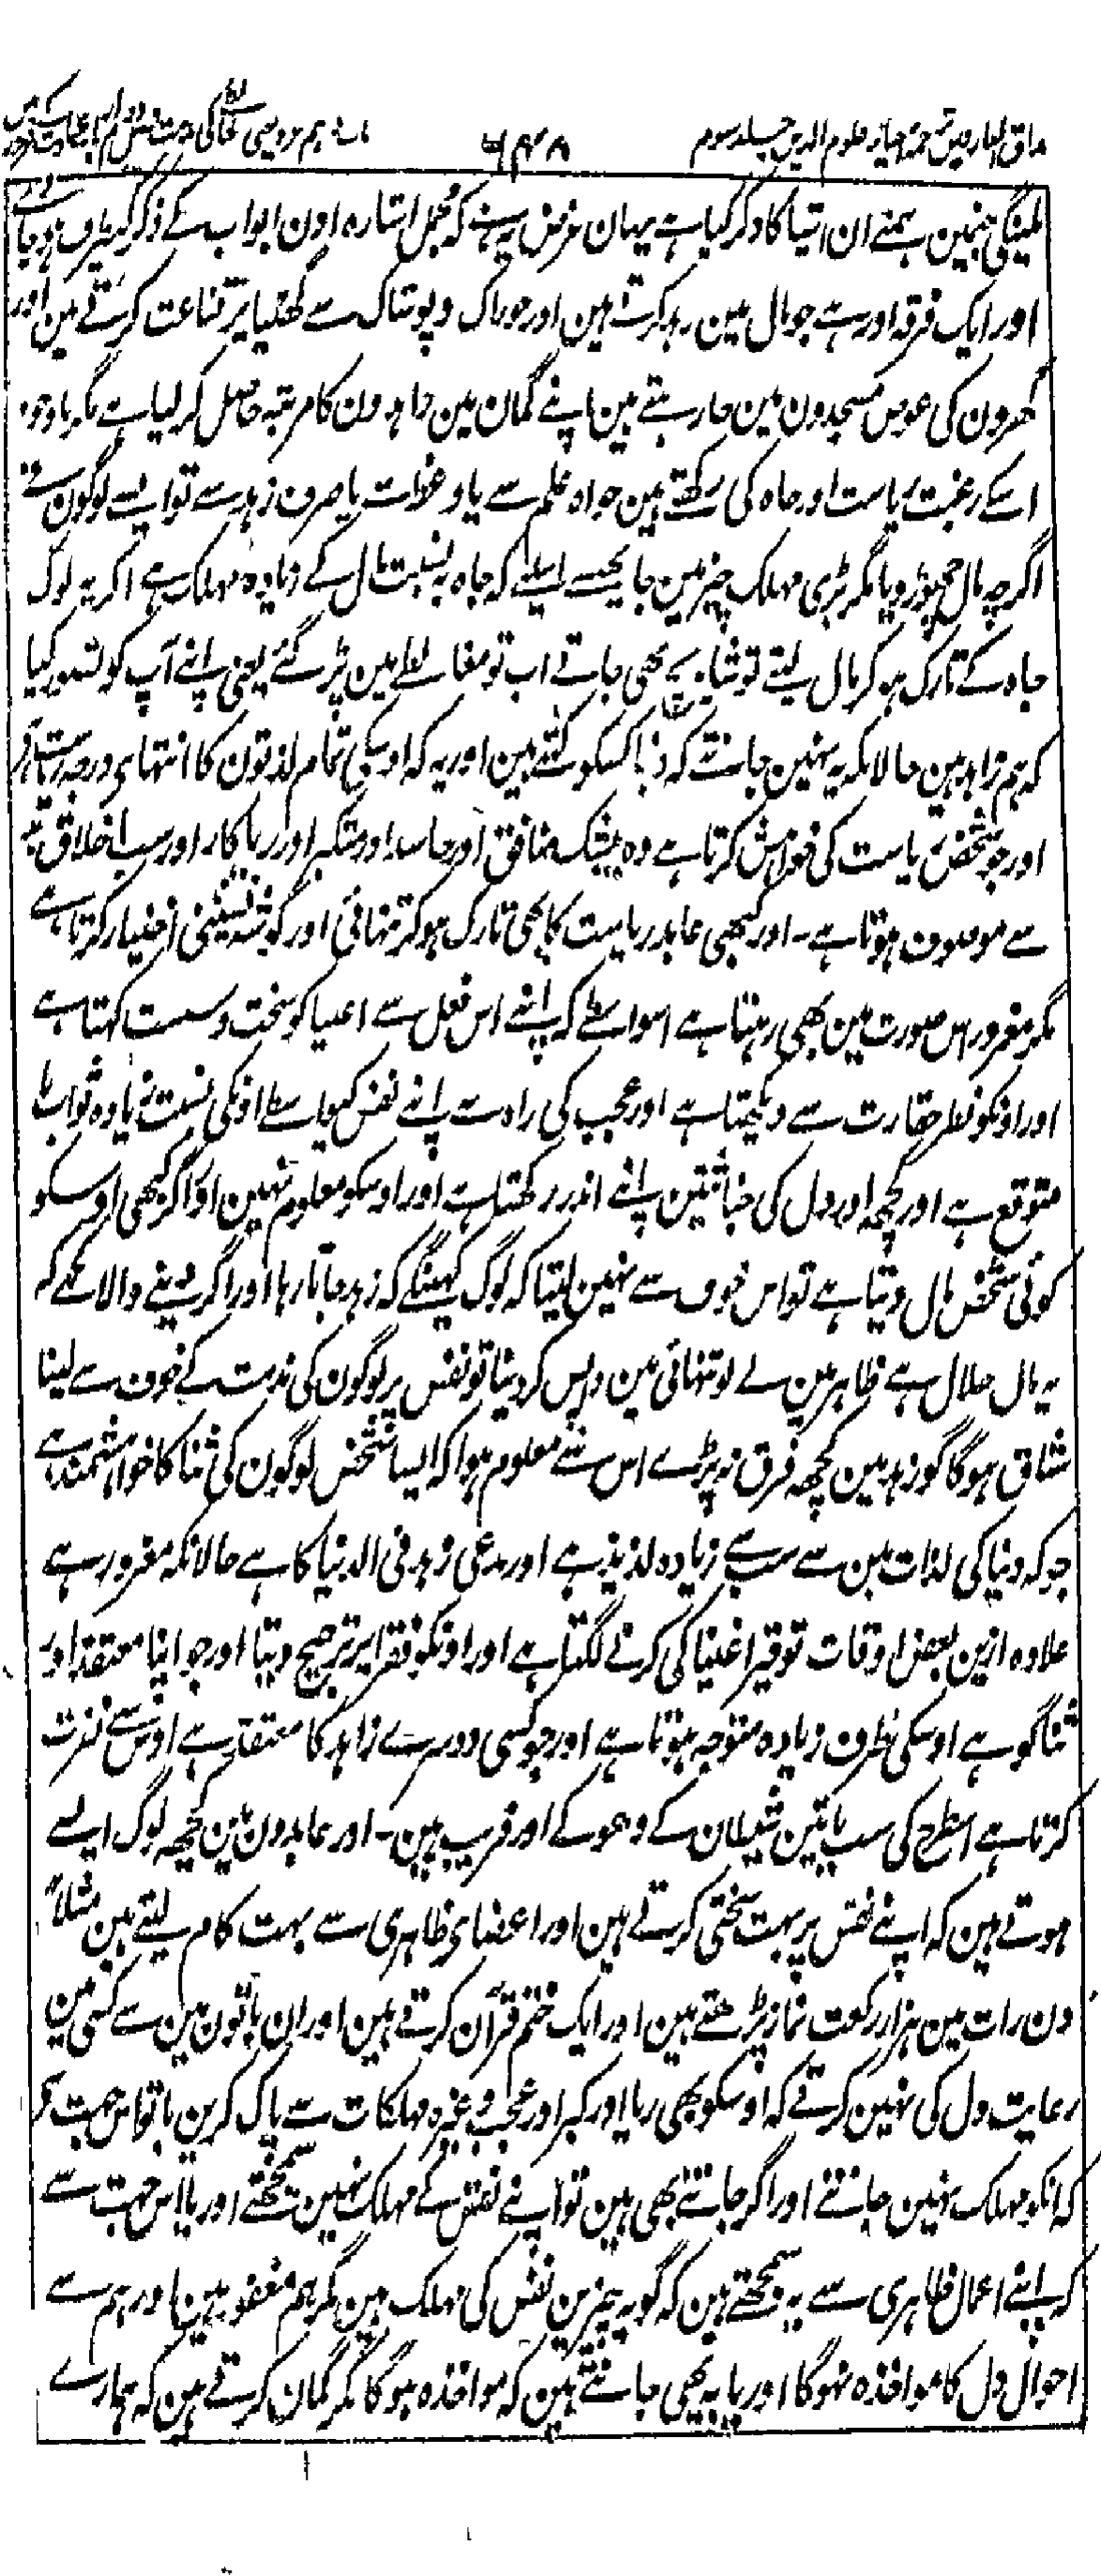 مذاق العارفین ترجمہ احیاء علوم الدین جلد سوم
۶۴۸
ملینگی جنہین ہمنے ان اشیا کا ذکر کیا ہے یہان غرض یہ ہے کہ مجمل اشارہ اون ابواب کے ذکر کیطرف ہو جاے
اور ایک فرقہ اور ہے جو مال مین زہد کرتے ہین اور خوراک و پوشاک سے گھٹیا پر قناعت کرتے ہین اور
گھرون کی عوض مسجدون مین جا رہتے ہین اپنے گمان مین زاہدون کا مرتبہ حاصل کر لیا ہے مگر باوجود
اسکے رغبت ریاست اور جاہ کی رکھتے ہین خواہ علم سے یا وعظ سے یا صرف زہد سے تو ایسے لوگون نے
اگرچہ مال چھوڑ دیا مگر بڑی مہلک چیز مین جا پھنسے اسلیے کہ جاہ بہ نسبت مال کے زیادہ مہلک ہے اگر یہ لوگ
جاہ کے تارک ہو کر مال لیتے تو شاید بچ بھی جاتے اب تو مغالطے مین پڑ گئے یعنی اپنے آپ کو تصور کیا
کہ ہم زاہد ہین حالانکہ یہ نہین جانتے کہ دنیا کسکو کہتے ہین اور یہ کہ اوسکی تمام لذتون کا انتہای درجہ ریاست ہے
اور جو شخص ریاست کی خواہش کرتا ہے وہ بیشک منافق اور حاسد اور متکبر اور ریاکار اور سب اخلاق بد
سے موصوف ہوتا ہے۔ اور کبھی عابد ریاست کا بھی تارک ہو کر تنہائی اور گوشہ نشینی اختیار کرتا ہے
مگر مغرور اس صورت مین بھی رہتا ہے اسواسطے کہ اپنے اس فعل سے اغنیا کو سخت و سست کہتا ہے
اور اونکو نظر حقارت سے دیکھتا ہے اور عجب کی راہ سے اپنے نفس کیواسطے اونکی نسبت زیادہ ثواب کا
متوقع ہے اور کچھ اور دل کی خباثتین اپنے اندر رکھتا ہے اور اوسکو معلوم نہین اور اگر کبھی اوسکو
کوئی شخص مال دیتا ہے تو اس خوف سے نہین لیتا کہ لوگ کہینگے کہ زہد جاتا رہا اور اگر دینے والا کہے کہ
یہ مال حلال ہے ظاہر مین لے لو تنہائی مین واپس کر دینا تو نفس پر لوگون کی مذمت کے خوف سے لینا
شاق ہوگا گو زہد مین کچھ فرق نہ پڑے اس سے معلوم ہوا کہ ایسا شخص لوگون کی ثنا کا خواہشمند ہے
جو کہ دنیا کی لذات مین سے سب سے زیادہ لذیذ ہے اور مدعی زہد فی الدنیا کا ہے حالانکہ مغرور ہے
علاوہ ازین بعض اوقات توقیر اغنیا کی کرنے لگتا ہے اور اونکو فقرا پر ترجیح دیتا اور جو اپنا معتقد اور
ثناگو ہے اوسکی طرف زیادہ متوجہ ہوتا ہے اور جو کسی دوسرے زاہد کا معتقد ہے اوس سے نفرت
کرتا ہے اسطرح کی سب باتین شیطان کے دھوکے اور فریب ہین۔ اور عابدون مین کچھ لوگ ایسے
ہوتے ہین کہ اپنے نفس پر بہت سختی کرتے ہین اور اعضای ظاہری سے بہت کام لیتے ہین مثلاً
دن رات مین ہزار رکعت نماز پڑھتے ہین اور ایک ختم قرآن کرتے ہین اور ان باتون مین سے کسی مین
رعایت دل کی نہین کرتے کہ اوسکو بھی ریا اور کبر اور عجب وغیرہ مہلکات سے پاک کرین یا تو اس جہت سے
کہ انکو مہلک نہین جانتے اور اگر جانتے بھی ہین تو اپنے نفس کے مہلک نہین سمجھتے اور یا اس جہت سے
کہ اپنے اعمال ظاہری سے یہ سمجھتے ہین کہ گو یہ چیزین نفس کی مہلک ہین مگر ہم مغفور ہین اور ہم سے
احوال دل کا مواخذہ نہوگا اور یا یہ بھی جانتے ہین کہ مواخذہ ہوگا مگر گمان کرتے ہین کہ ہمارے